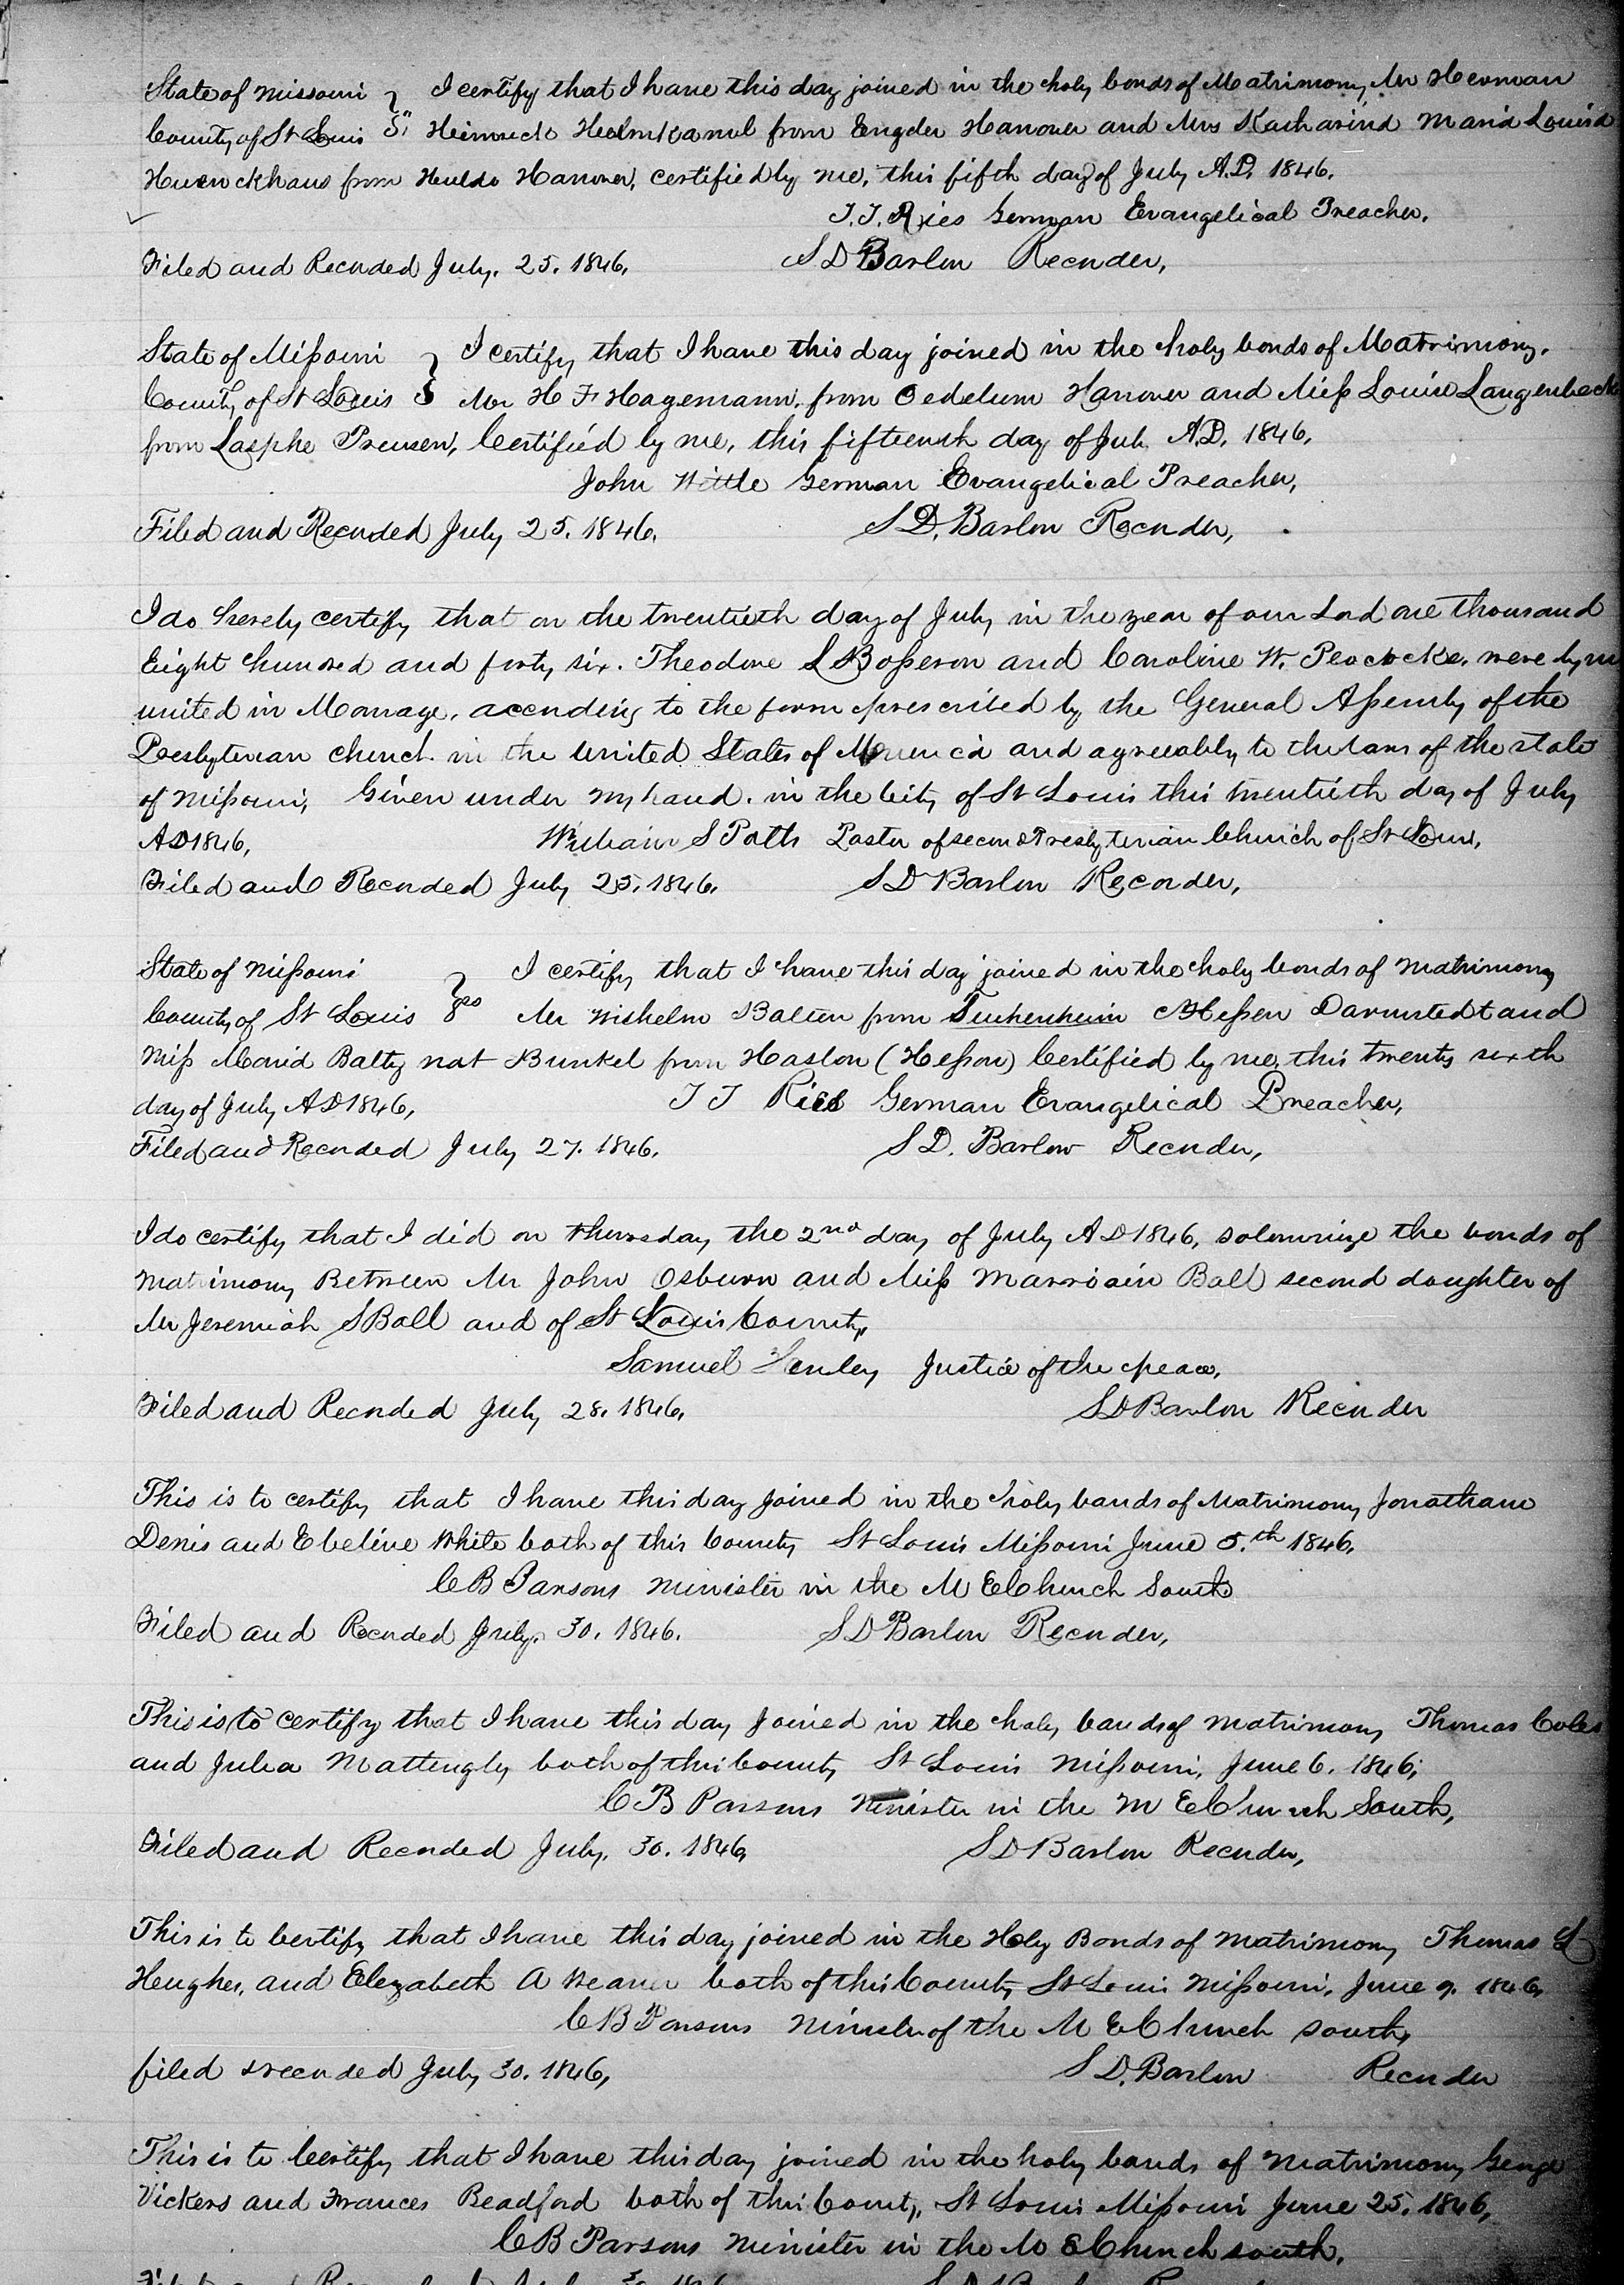 State of Missouri } I certify that I have this day joined in the holy bonds of Matrimony, Mr Herman
County of St Louis } Heinrich from Engder Hanover and Mrs Katharina Maria Louisa
from Hanover, certified by me, this fifth day of July A.D. 1846.
J.J. Ries German Evangelical Preacher.
Filed and Recorded July. 25. 1846. S D Barlow Recorder,
State of Missouri } I certify that I have this day joined in the holy bonds of Matrimony.
County of St Louis } Mr H F Hagemann, from Oedelum Hanover and Miss Louise Langenbeck
from Lasphe Preusen, Certified by me, this fifteenth day of July A.D. 1846,
John Wittle German Evangelical Preacher,
Filed and Recorded July 25. 1846. S D. Barlow Recorder,
I do hereby certify that on the twentieth day of July in the year of our Lord one thousand
Eight hundred and forty six. Theodore L Bosseron and Caroline W. Peacocke, were by me
united in Marriage, according to the form prescribed by the General Assembly of the
Presbyterian church in the United States of America and agreeably to the laws of the state
of Missouri, Given under my hand. in the City of St Louis this twentieth day of July
AD 1846, William S Potts Pastor of second Presbyterian Church of St Louis,
Filed and Recorded July 25. 1846. S D Barlow Recorder,
State of Missouri } I certify that I have this day joined in the holy bonds of matrimony
County of St Louis } ss Mr Wilhelm from Hessen Darmstedt and
Miss Maria Baltz nat Bunkel from Haslon (Hesson) Certified by me, this twenty sixth
day of July AD 1846, J J Ries German Evangelical Preacher,
Filed and Recorded July 27. 1846. S D. Barlow Recorder,
I do certify that I did on thursday the 2nd day of July AD 1846, solemnize the bonds of
matrimony Between Mr John Osburn and Miss Ball second daughter of
Mr Jeremiah S Ball and of St Louis County,
Samuel Henley Justice of the peace,
Filed and Recorded July 28. 1846, S D Barlow Recorder
This is to certify that I have this day joined in the holy bands of Matrimony Jonathan
Denis and Eveline White both of this County St Louis Missouri June 5.th 1846,
C B Parsons minister in the M E Church South
Filed and Recorded July. 30. 1846. S D Barlow Recorder,
This is to certify that I have this day joined in the holy bands of matrimony Thomas Coles
and Julia Mattingly both of this County St Louis Missouri, June 6. 1846,
C B Parsons Minister in the M E Church South,
Filed and Recorded July. 30. 1846, S D Barlow Recorder,
This is to Certify that I have this day joined in the Holy Bonds of matrimony Thomas L
Heughes, and Elezabeth A Weaver both of this County St Louis Missouri, June 9. 1846,
C B Parsons Minister of the M E Church south,
filed & recorded July 30. 1846, S D. Barlow Recorder
This is to Certify that I have this day joined in the holy bands of matrimony George
Vickers and Frances Beadford both of this County, St Louis Missouri June 25. 1846,
C B Parsons minister in the M E Church south.
Filed and Recorded July 30. 1846 S D Barlow Recorder